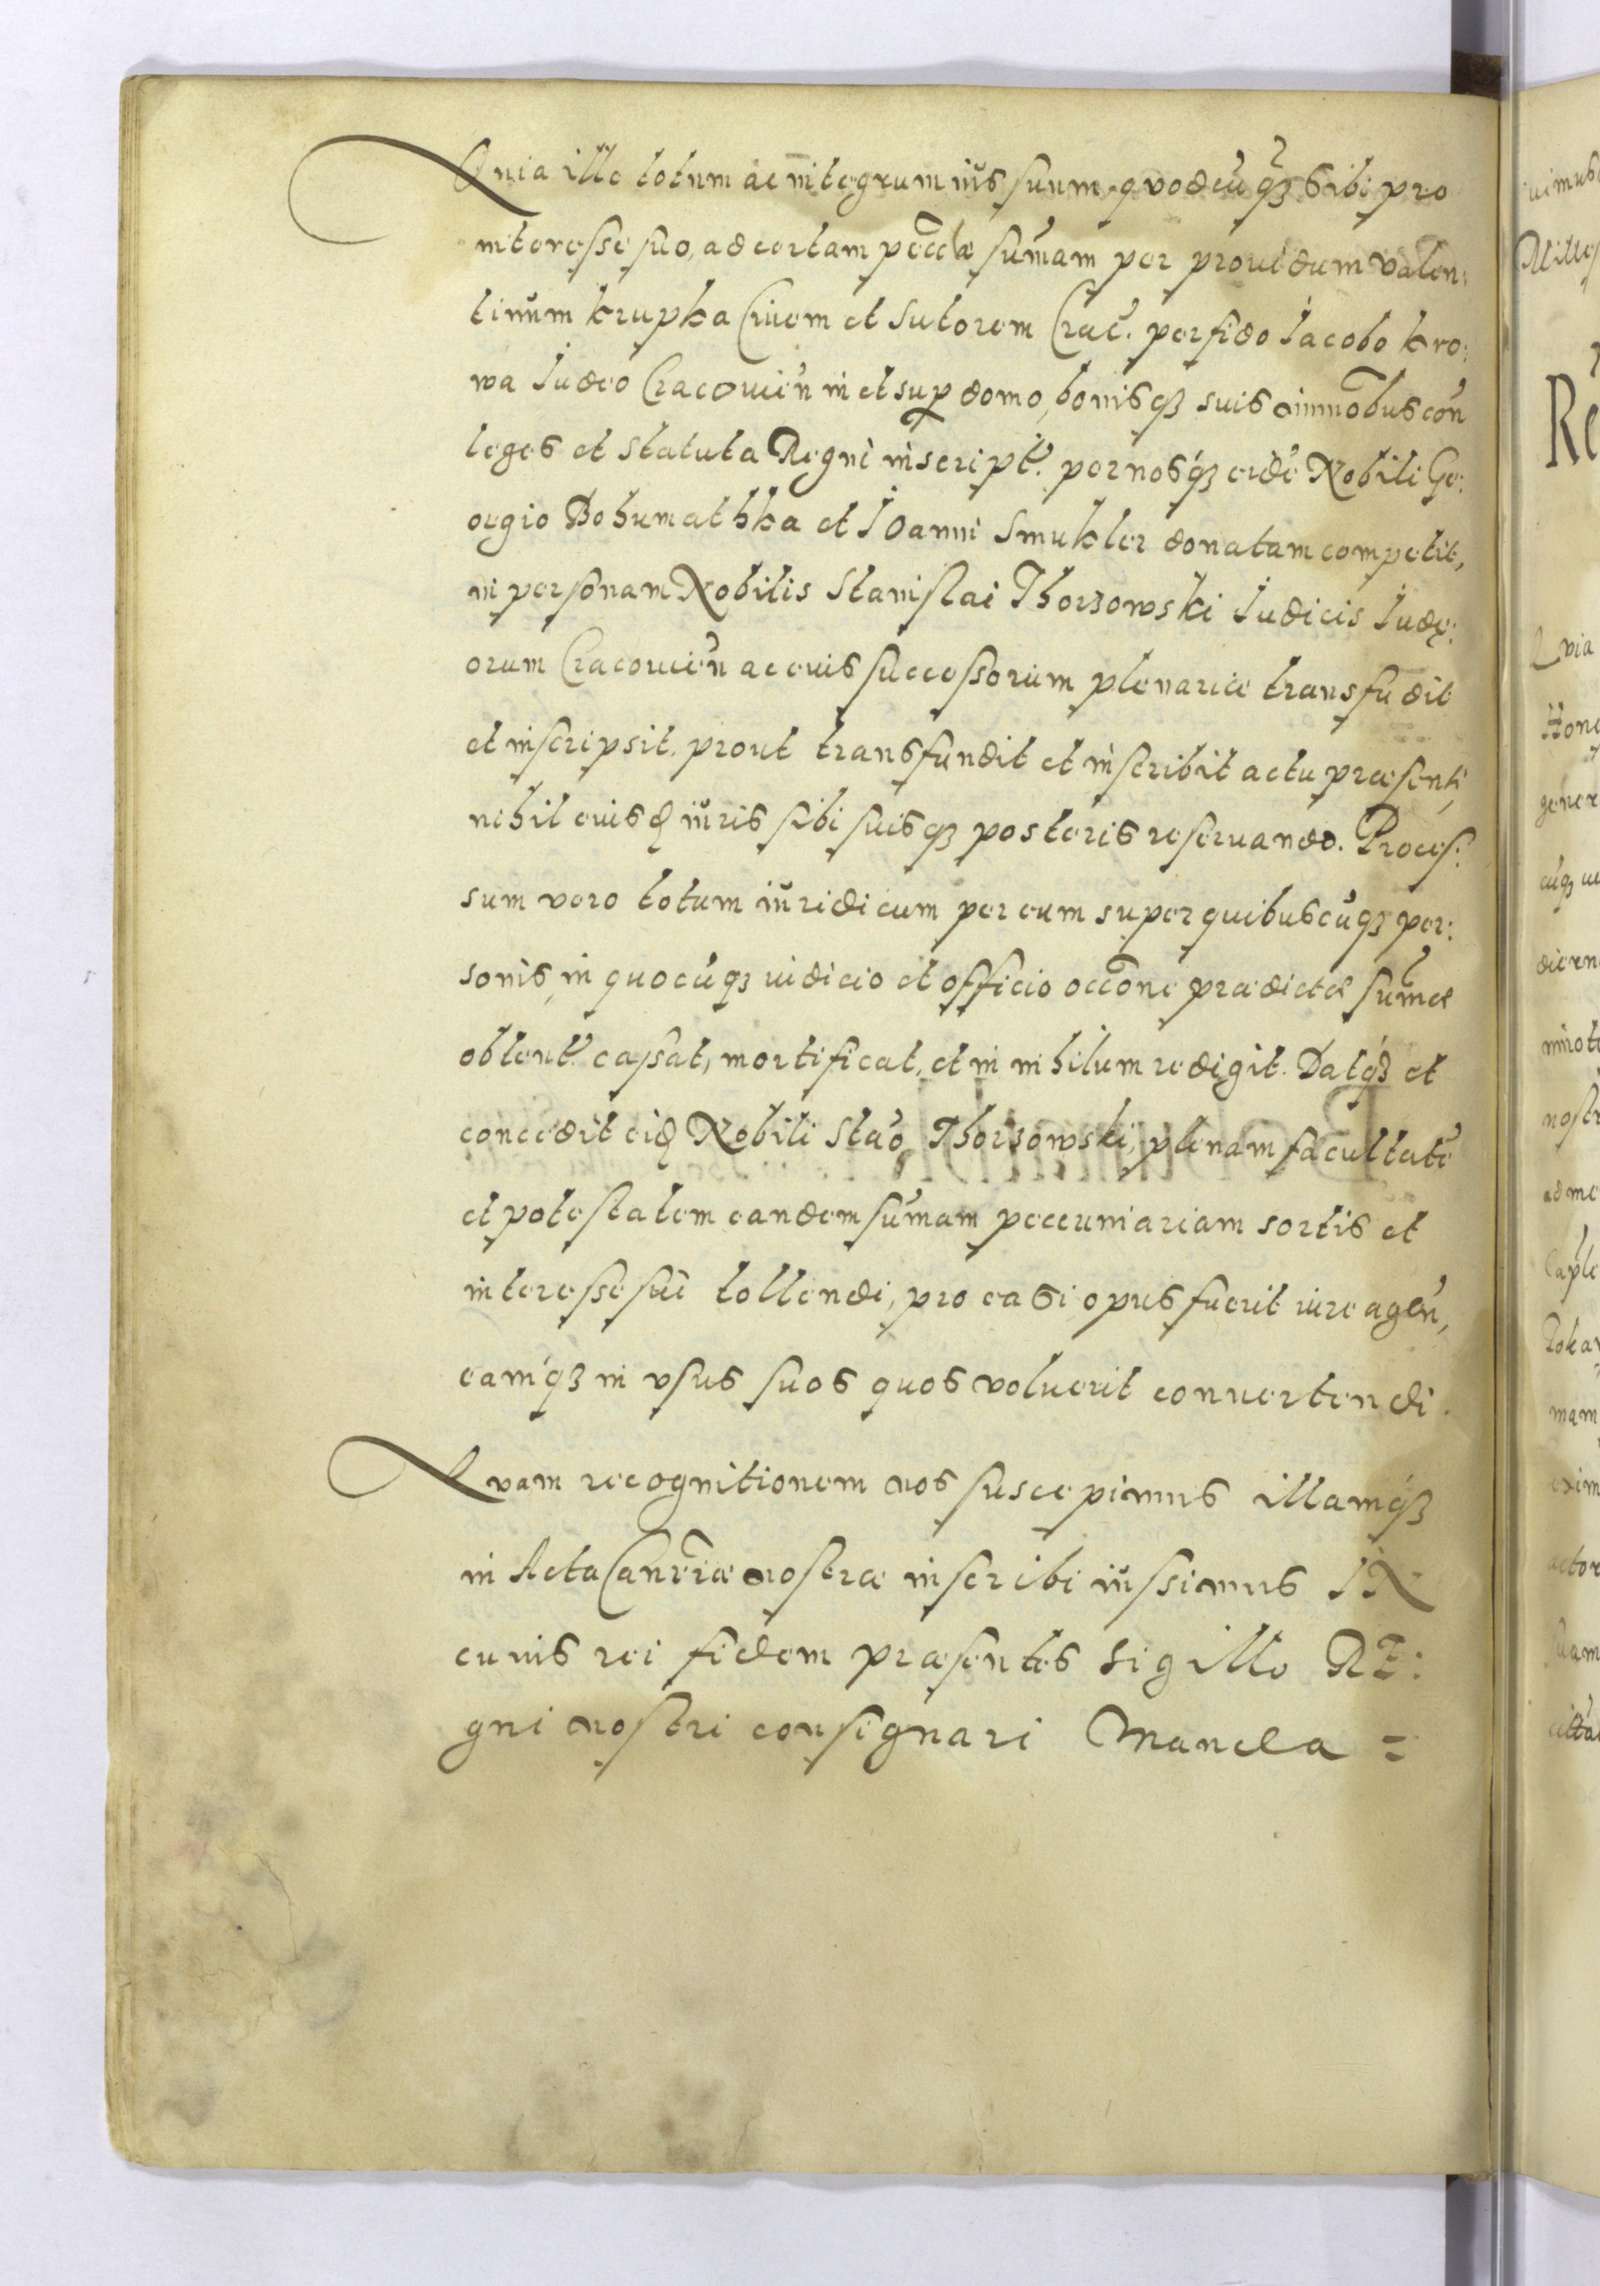 Quia ille totum ac integrum ius suum, quodcuq3 sibi pro
interesse suo, ad certam peccłæ sumam per prouidum Valen:
tinum krupka Ciuem et Sutorem Crac. perfido Iacobo kro:
wa Iudeo Cracouien in et sup domo, bonisq3 suis oimnobus con
leges et Statuta Regni inscript. per nosq3 eide Nobili Ge:
orgio Bohumathka et Ioanni Smukler donatam competit,
in personam Nobilis Stanislai Thorzowski Iudicis Iudę:
orum Cracouien ac euis successorum plenarie transfudit
et inscripsit. prout transfundit et inscribit actu præsenti,
nihil euisd iuris sibi suisq3 posteris reseruando. Proces:
sum vero totum iuridicum per eum super quibuscuq3 per:
sonis, in quocuq3 iudicio et officio occone prædictæ sumæ
obtent. cassat, mortificat, et in nihilum redigit. Datq3 et
concedit eid Nobili Stao Thorzowski, plenam facultate
et potestatem eandem sumam peccuniariam sortis et
interesse sui tollendi, pro ea si opus fuerit iure agen,
eamq3 in vsus suos quos voluerit conuertendi.
Quam recognitionem nos suscepimus illamq3
in Acta Canrïæ nostræ inscribi iussimus IN
cuius rei fidem præsentes Sigillo RE:
gni nostri consignari Manda =